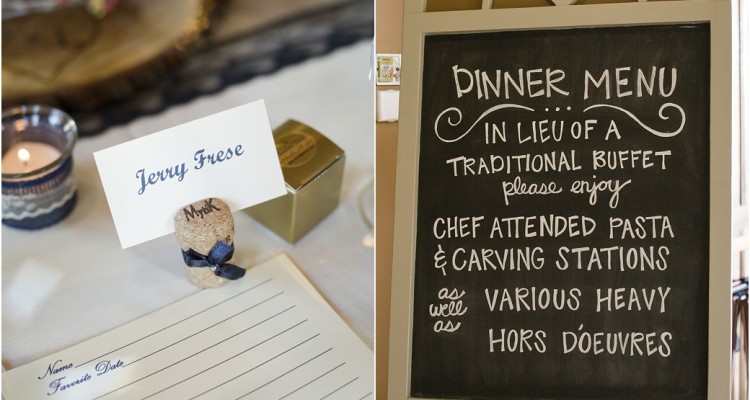 Jerry Frese
Name
Favorite Date
DINNER MENU
IN LIEU OF A
TRADITIONAL BUFFET
please enjoy
CHEF ATTENDED PASTA
& CARVING STATIONS
as well as VARIOUS HEAVY
HORS D'OEUVRES